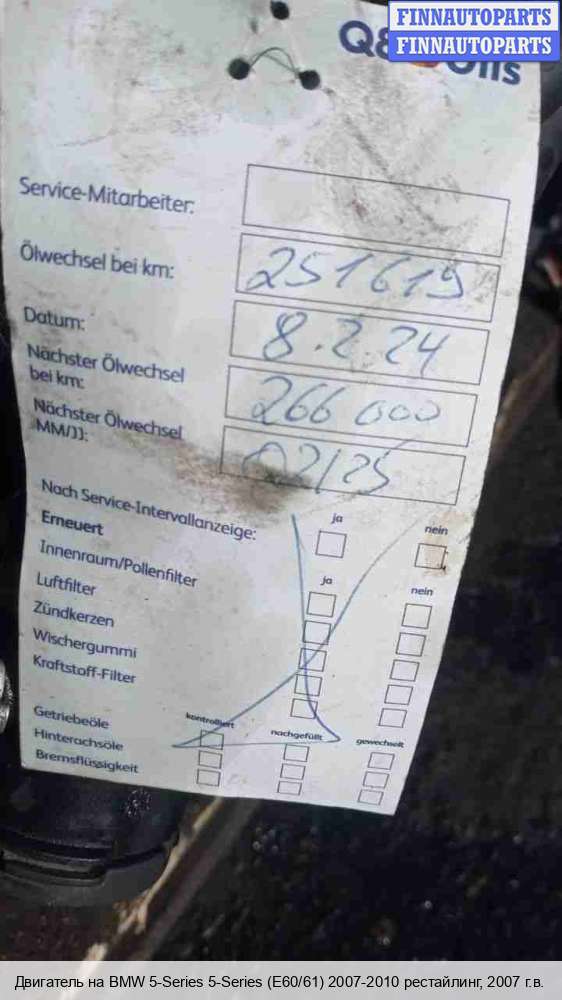 FINNAUTOPARTS
FINNAUTOPARTS
Q8 Oils
Service-Mitarbeiter:
Ölwechsel bei km: 251619
Datum: 8.2.24
Nächster Ölwechsel
bei km: 266 000
Nächster Ölwechsel
MM/JJ: 02/25
Nach Service-Intervallanzeige: ja nein
Erneuert ja nein
Innenraum/Pollenfilter
Luftfilter
Zündkerzen
Wischergummi
Kraftstoff-Filter
kontrolliert nachgefüllt gewechselt
Getriebeöle
Hinterachsöle
Bremsflüssigkeit
Двигатель на BMW 5-Series 5-Series (E60/61) 2007-2010 рестайлинг, 2007 г.в.